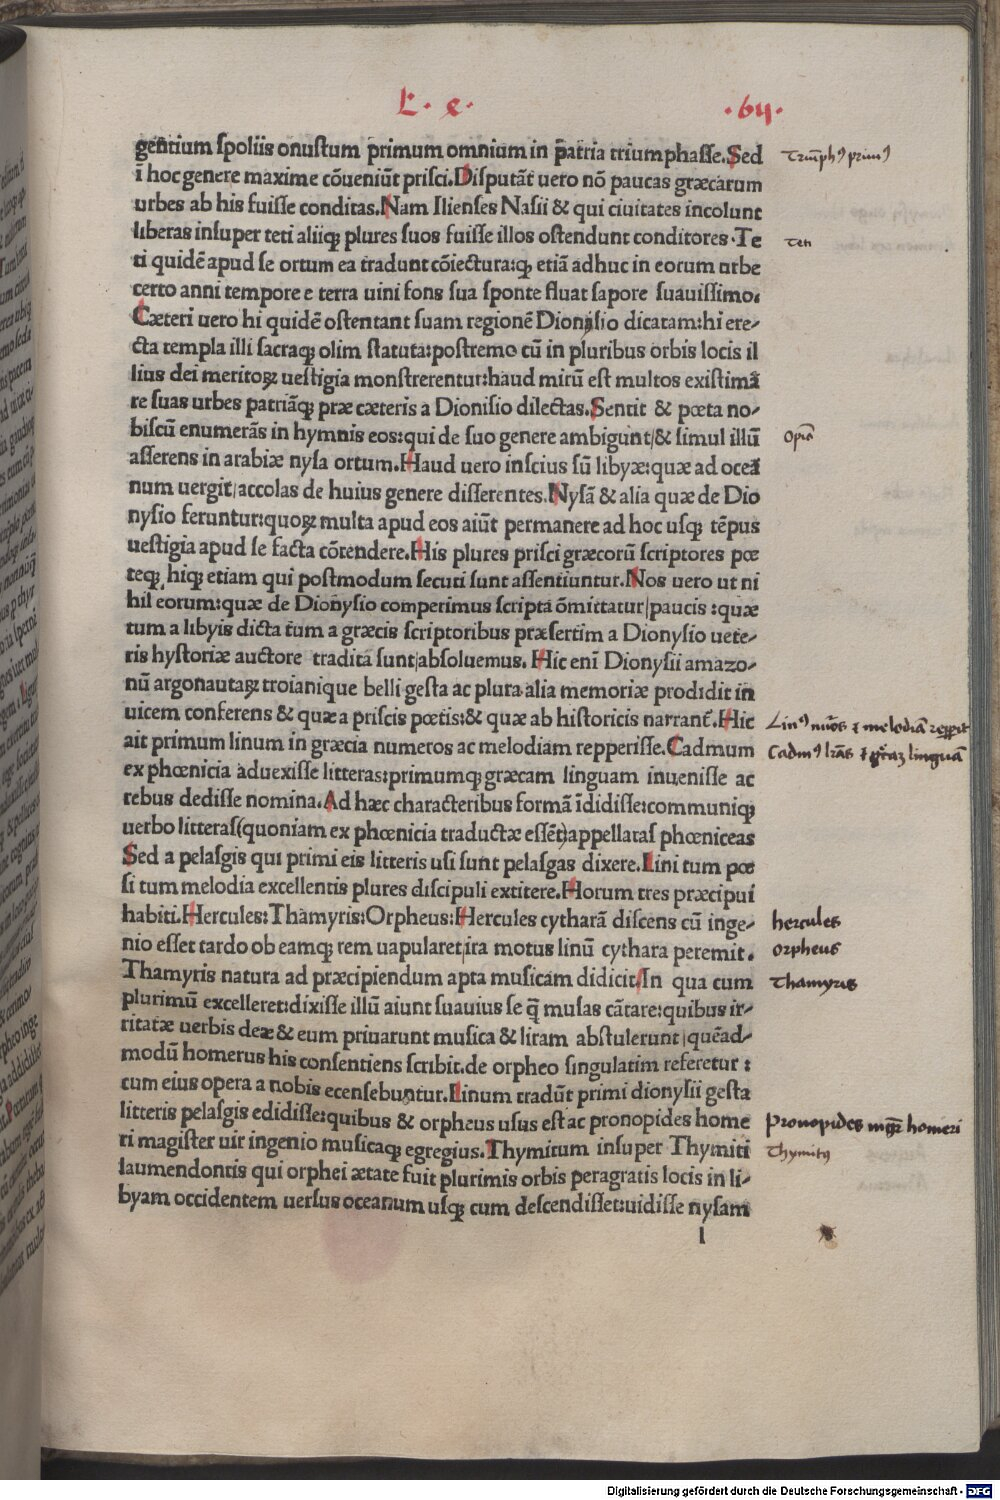 gentium ſpoliis onuſtum primum omnium in patria triumphaſſe. Sed
ī hoc genere maxime cōueniūt priſci. Diſputāt uero nō paucas græcarum
urbes ab his fuiſſe conditas. Nam Ilienſes Naſii & qui ciuitates incolunt
liberas inſuper teti aliiqȝ plures ſuos fuiſſe illos oſtendunt conditores. Te
ti quidē apud ſe ortum ea tradunt cōiectura: qȝ etiā adhuc in eorum urbe
certo anni tempore e terra uini fons ſua ſponte fluat ſapore ſuauiſſimo.
Cæteri uero hi quidē oſtentant ſuam regionē Dionyſio dicatam: hi ere-
cta templa illi ſacraqȝ olim ſtatuta: poſtremo cū in pluribus orbis locis il
lius dei meritoꝝ ueſtigia monſtrerentur: haud mirū eſt multos exiſtimā
re ſuas urbes patriāqȝ præ cæteris a Dioniſio dilectas. Sentit & pœta no-
biſcū enumerās in hymnis eos: qui de ſuo genere ambigunt/& ſimul illū
aſſerens in arabiæ nyſa ortum. Haud uero inſcius ſū libyæ: quæ ad oceā
num uergit/accolas de huius genere diſſerentes. Nyſā & alia quæ de Dio
nyſio feruntur: quoꝝ multa apud eos aiūt permanere ad hoc uſqȝ tēpus
ueſtigia apud ſe facta cōtendere. His plures priſci græcorū ſcriptores pœ
teqȝ hiqȝ etiam qui poſtmodum ſecuti ſunt aſſentiuntur. Nos uero ut ni
hil eorum: quæ de Dionyſio comperimus ſcripta ōmittatur/paucis: quæ
tum a libyis dicta tum a græcis ſcriptoribus præſertim a Dionyſio uete-
ris hyſtoriæ auctore tradita ſunt/abſoluemus. Hic enī Dionyſii amazo-
nū argonautaꝝ troianique belli geſta ac plura alia memoriæ prodidit in
uicem conferens & quæ a priſcis pœtis: & quæ ab hiſtoricis narrant̄. Hic
ait primum linum in græcia numeros ac melodiam repperiſſe. Cadmum
ex phœnicia aduexiſſe litteras: primumqȝ græcam linguam inueniſſe ac
rebus dediſſe nomina. Ad hæc characteribus formā īdidiſſe: communiqȝ
uerbo litteraſ(quoniam ex phœnicia traductæ eſſēt)appellataſ phœniceas
Sed a pelaſgis qui primi eis litteris uſi ſunt pelaſgas dixere. Lini tum pœ
ſi tum melodia excellentis plures diſcipuli extitere. Horum tres præcipui
habiti. Hercules: Thamyris: Orpheus: Hercules cytharā diſcens cū inge-
nio eſſet tardo ob eamqȝ rem uapularet/ira motus linū cythara peremit.
Thamyris natura ad præcipiendum apta muſicam didicit. In qua cum
plurimū excelleret: dixiſſe illū aiunt ſuauius ſe q̄ muſas cātare: quibus ir-
ritatæ uerbis deæ & eum priuarunt muſica & liram abſtulerunt/quēad-
modū homerus his conſentiens ſcribit. de orpheo ſingulatim referetur:
cum eius opera a nobis ecenſebuntur. Linum tradūt primi dionyſii geſta
litteris pelaſgis edidiſſe: quibus & orpheus uſus eſt ac pronopides home
ri magiſter uir ingenio muſicaqȝ egregius. Thymitum inſuper Thymiti
laumendontis qui orphei ætate fuit plurimis orbis peragratis locis in li-
byam occidentem uerſus oceanum uſqȝ cum deſcendiſſet: uidiſſe nyſam
l
Teti
hercules
orpheus
Thamyris
Pronopides mgr̄ homeri
Digitalisierung gefördert durch die Deutsche Forschungsgemeinschaft - DFG